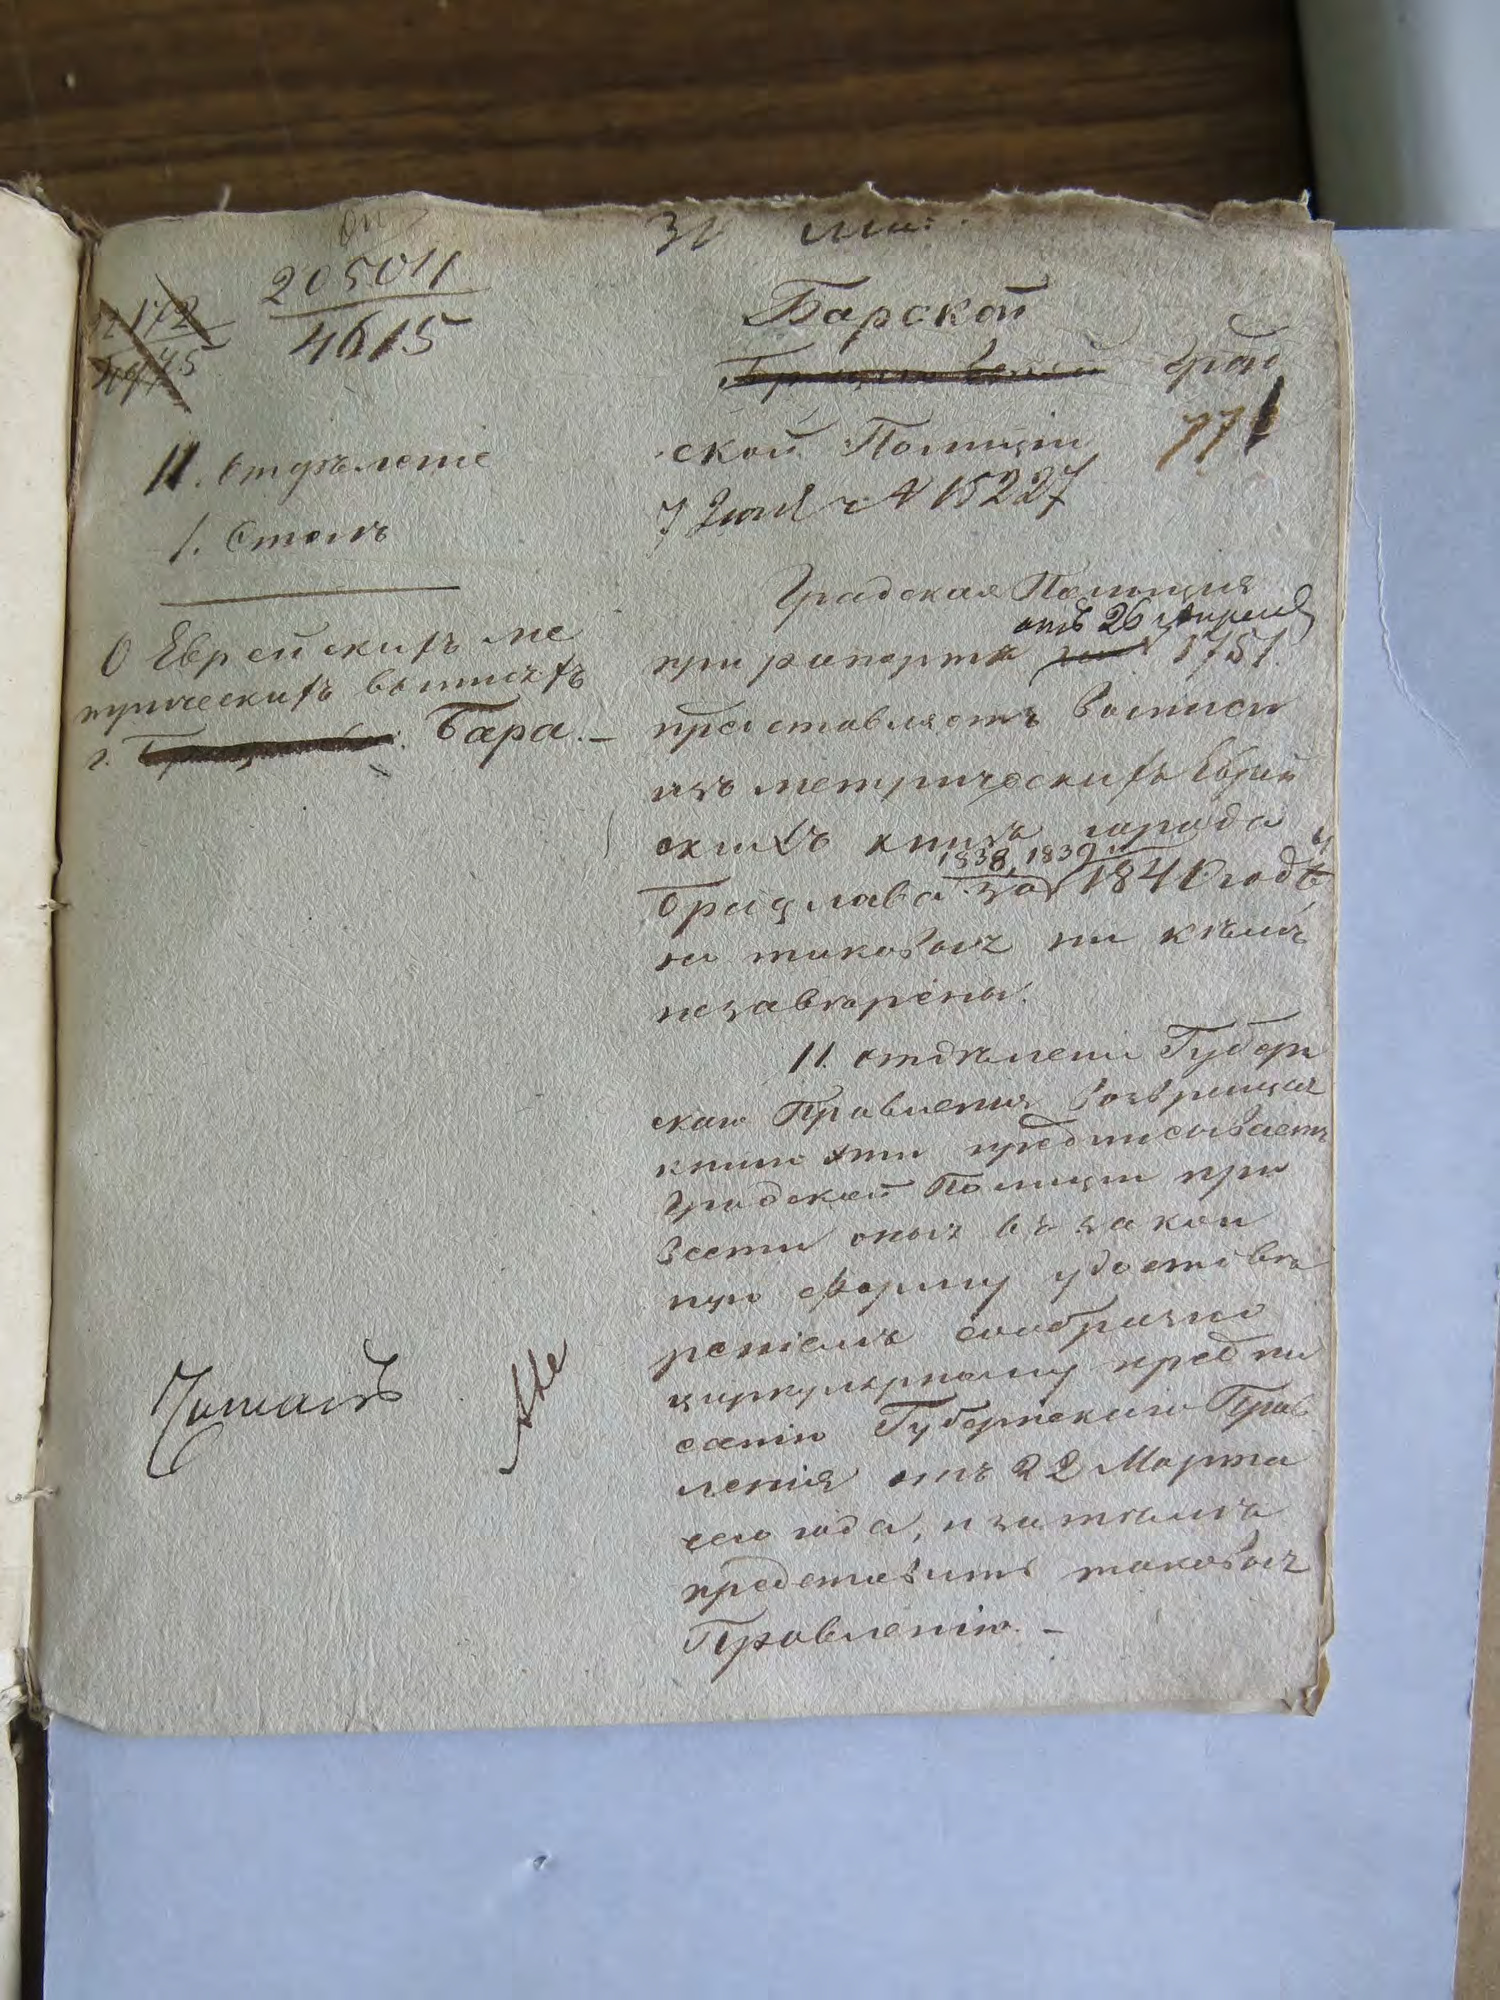 20504
4615
II. отделеніе
1. Столъ
О Еврейскихъ ме
трическихъ выписяхъ
г. Бара. —
Барской
Град
ской Полиціи
77
7 Іюля № 15227
Градская Полиція
отъ 26 Апреля
при рапорте 1751
представляетъ выписи
изъ метрическихъ Еврей
скихъ книгъ города
1838, 1839
Брацлава за 1841 годъ
но таковыя ни кѣмъ
незавѣрены.
II. отдѣленіе Губерн
скаго Правленія возвращая
книги эти предписываетъ
Градской Полиціи при
вести оныя въ закон
ную форму удостовѣ
реніемъ сообразно
циркулярному предпи
санію Губернскаго Прав
ленія отъ 22 Марта
сего года, и за темъ
представить таковыя
Правленію. —